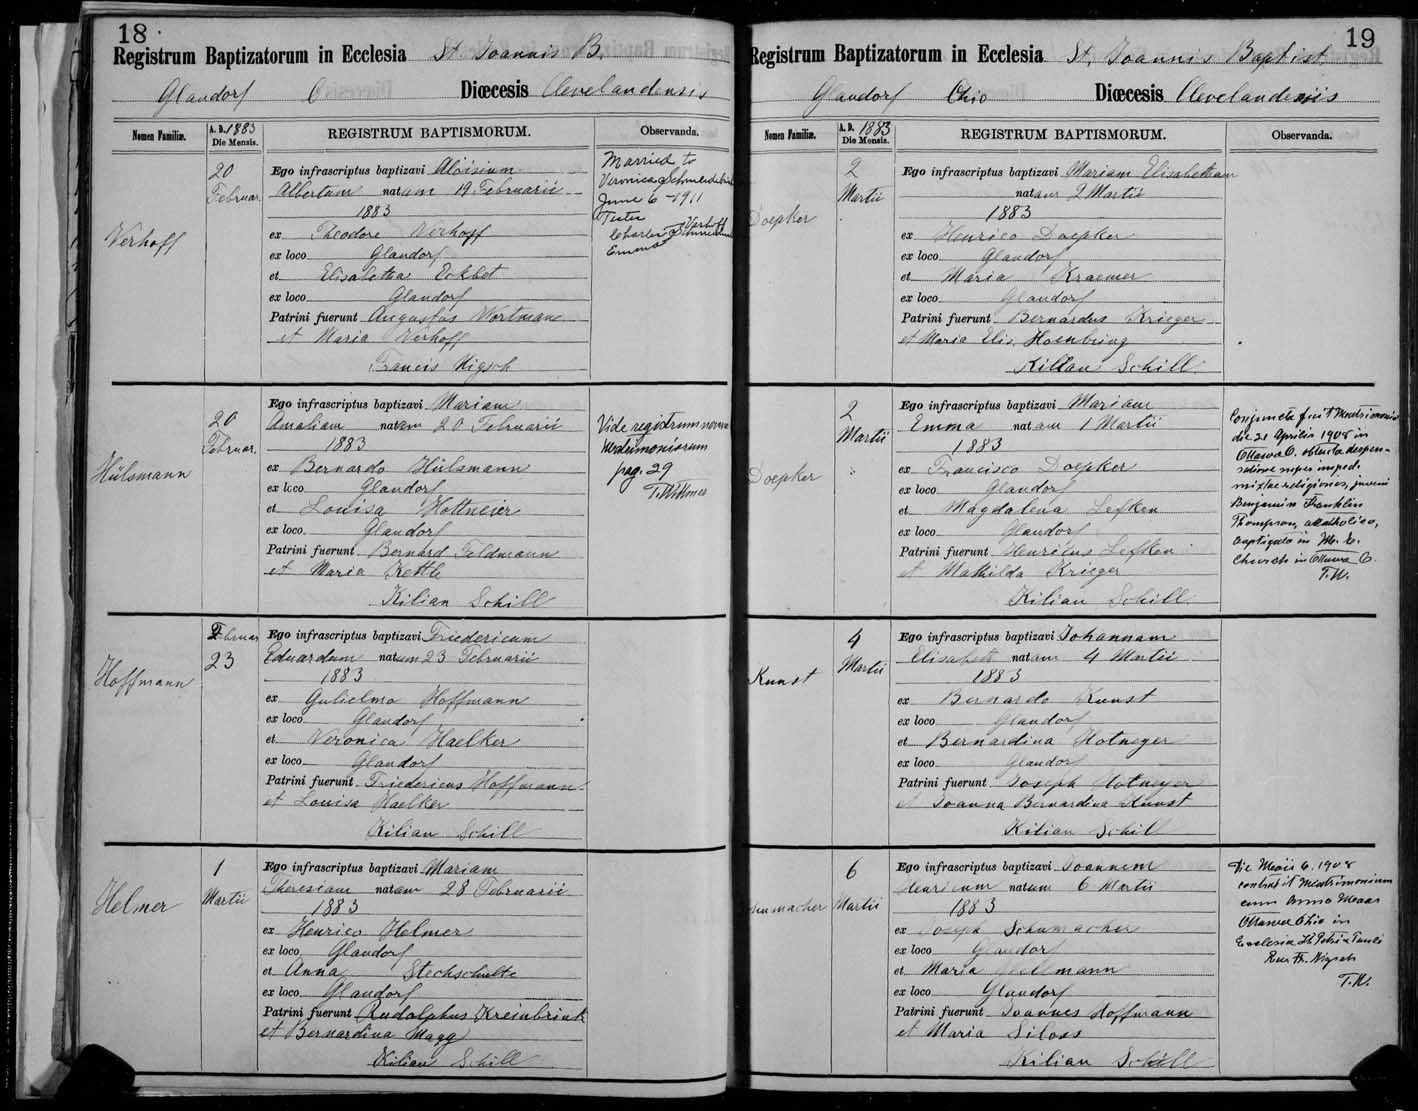 18
Registrum Baptizatorum in Ecclesia St. Joannis B.
Glandorf O Diœcesis Clevelandensis
Nomen Familiæ.
A. D. 1883
Die Mensis.
REGISTRUM BAPTISMORUM.
Observanda.
Verhoff
20
Februar
Ego infrascriptus baptizavi Aloisium
Albertum natum 19 Februarii
1883
ex Theodore Verhoff
ex loco Glandorf
et Elisabetha
ex loco Glandorf
Patrini fuerunt Augustus Wortman
et Maria Verhoff
Francis Nigsch
Married to
Veronica
June 6 - 1911
Testes
Charles Verhoff
Emma
Hülsmann
20
Februar.
Ego infrascriptus baptizavi Mariam
Amaliam natam 20 Februarii
1883
ex Bernardo Hülsmann
ex loco Glandorf
et Louisa
ex loco Glandorf
Patrini fuerunt Bernard Feldmann
et Maria Kettle
Kilian Schill
Vide registrum novum
Matrimoniorum
pag. 29
Hoffmann
Februar
23
Ego infrascriptus baptizavi Friedericum
Eduardum natum 23 Februarii
1883
ex Gulielmo Hoffmann
ex loco Glandorf
et Veronica Haelker
ex loco Glandorf
Patrini fuerunt Friedericus Hoffmann
et Louisa Haelker
Kilian Schill
Helmer
1
Martii
Ego infrascriptus baptizavi Mariam
Theresiam natam 28 Februarii
1883
ex Henrico Helmer
ex loco Glandorf
et Anna Stechschulte
ex loco Glandorf
Patrini fuerunt Rudolphus Kreinbrink
et Bernardina Magg
Kilian Schill
19
Registrum Baptizatorum in Ecclesia St. Joannis Baptist.
Glandorf Ohio Diœcesis Clevelandensis
Nomen Familiæ.
A. D. 1883
Die Mensis.
REGISTRUM BAPTISMORUM.
Observanda.
Doepker
2
Martii
Ego infrascriptus baptizavi Mariam Elisabetham
natam 2 Martii
1883
ex Henrico Doepker
ex loco Glandorf
et Maria Kraemer
ex loco Glandorf
Patrini fuerunt Bernardus Krieger
et Maria Elis. Hoenbring
Kilian Schill
Doepker
2
Martii
Ego infrascriptus baptizavi Mariam
Emma natam 1 Martii
1883
ex Francisco Doepker
ex loco Glandorf
et Magdalena Lefken
ex loco Glandorf
Patrini fuerunt Henricus Lefken
et Mathilda Krieger
Kilian Schill
Conjuncta fuit Matrimonio
die 21 Aprilis 1908 in
Ottawa O. obtenta dispen-
satione super imped.
mixtae religionis, juveni
Benjamin Franklin
Thompson, acatholico,
baptizato in M. E.
Church in Ottawa O.
T. W.
Kunst
4
Martii
Ego infrascriptus baptizavi Johannam
Elisabeth natam 4 Martii
1883
ex Bernardo Kunst
ex loco Glandorf
et Bernardina Hotmeyer
ex loco Glandorf
Patrini fuerunt Joseph Hotmeyer
et Joanna Bernardina Kunst
Kilian Schill
Schumacher
6
Martii
Ego infrascriptus baptizavi Joannem
Henricum natum 6 Martii
1883
ex Joseph Schumacher
ex loco Glandorf
et Maria
ex loco Glandorf
Patrini fuerunt Joannes Hoffmann
et Maria Siloss
Kilian Schill
Die Maii 6. 1908
contraxit Matrimonium
cum Anna Maas
Ottawa Ohio in
Ecclesia St Petri & Pauli
Rev. Fr. Nigsch
T. W.